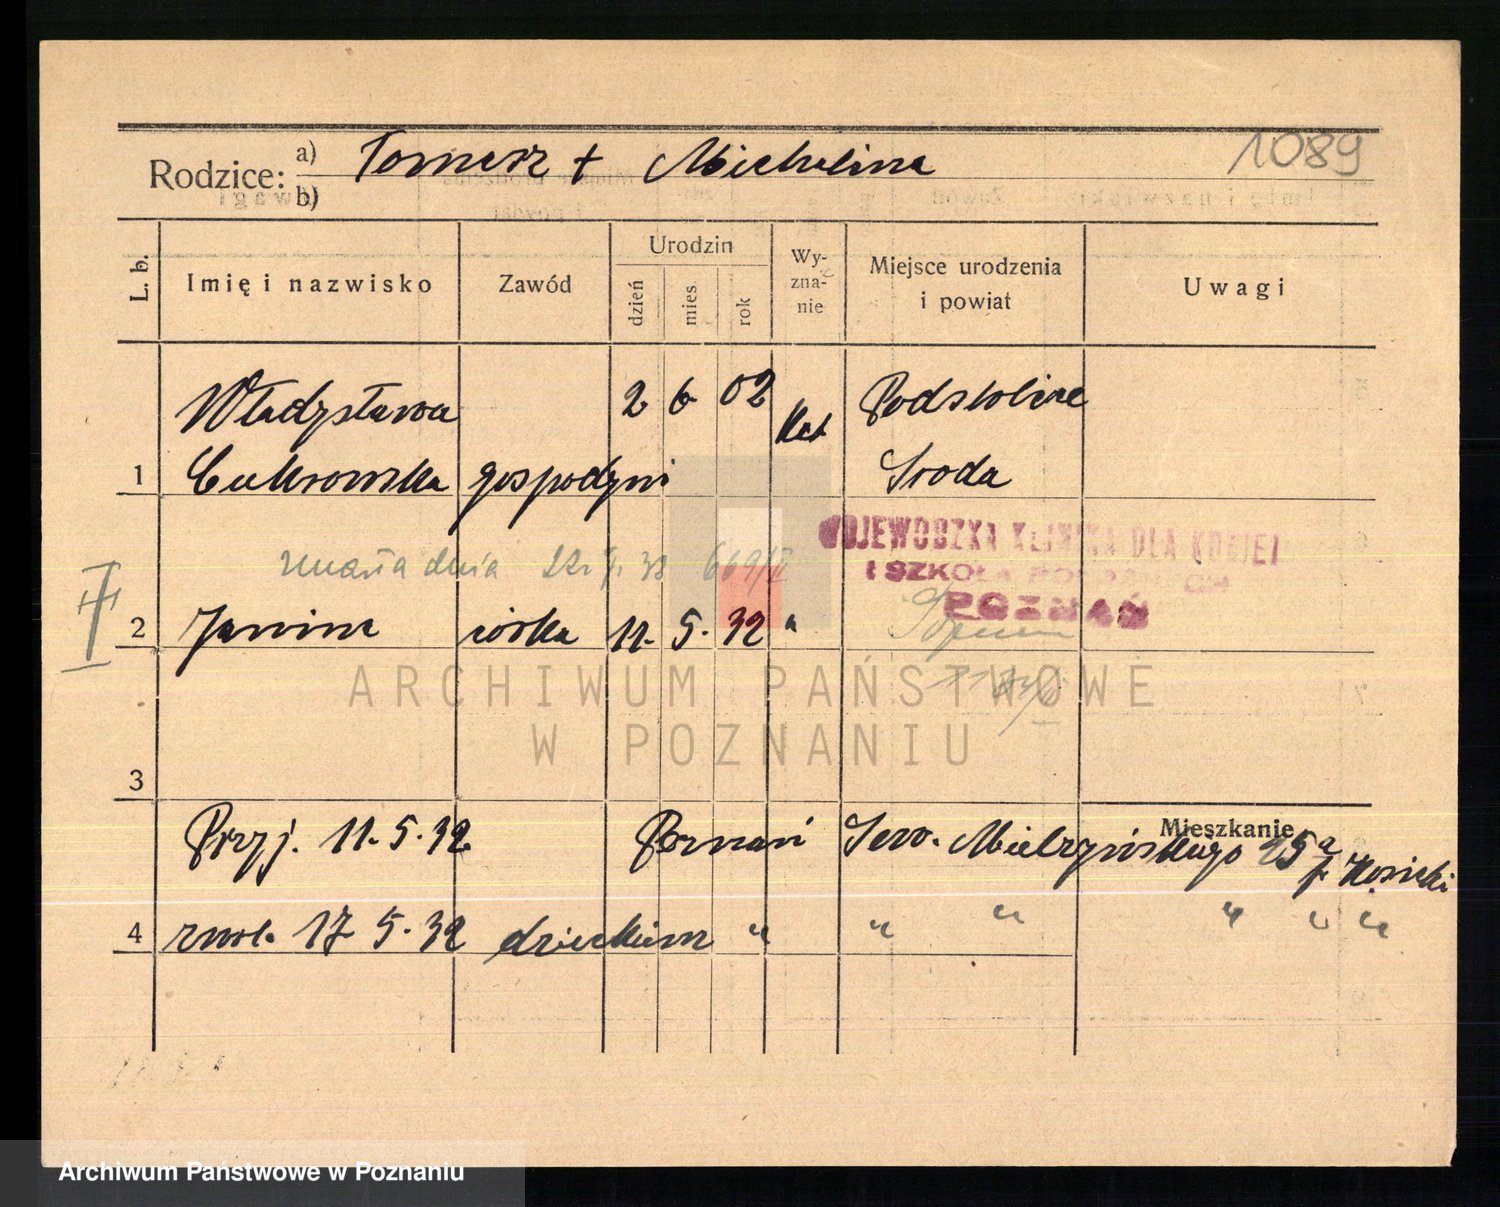 Rodzice: a) Tomasz + Michalina 1089
b)
L. b. Imię i nazwisko Zawód Urodzin dzień mies. rok Wy-zna-nie Miejsce urodzenia i powiat Uwagi
Władysława 2 6 02 Kat Podstolice
1 Cukrowska gospodyni Środa
WOJEWÓDZKA KLINIKA DLA KOBIET
zmarła dnia 669/II
I SZKOŁA POŁOŻNYCH
POZNAŃ
2 Janina córka 11. 5. 32 "
ARCHIWUM PAŃSTWOWE
W POZNANIU
3
Mieszkanie
Przyj. 11. 5. 32 Poznań Sew. Mielżyńskiego 25a
4 zwol. 17 5. 32 dzieckiem " " " " " "
Archiwum Państwowe w Poznaniu